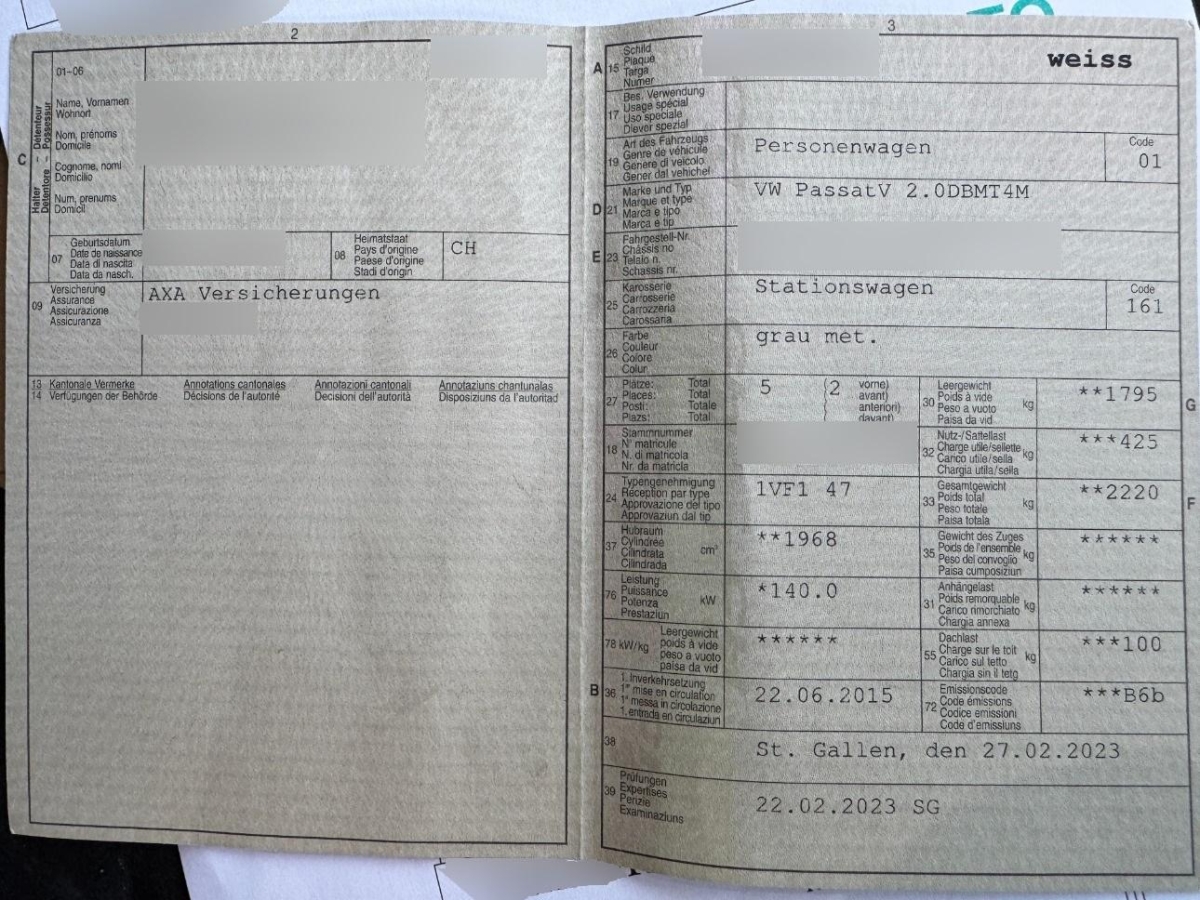 2
01-06
Name, Vornamen
Wohnort
Nom, prénoms
Domicile
Cognome, nomi
Domicilio
Num, prenums
Domicil
C
Halter – Détenteur
Detentore – Possessur
07
Geburtsdatum
Date de naissance
Data di nascita
Data da nasch.
08
Heimatstaat
Pays d'origine
Paese d'origine
Stadi d'origin
CH
09
Versicherung
Assurance
Assicurazione
Assicuranza
AXA Versicherungen
13 Kantonale Vermerke Annotations cantonales Annotazioni cantonali Annotaziuns chantunalas
14 Verfügungen der Behörde Décisions de l'autorité Decisioni dell'autorità Disposiziuns da l'autoritad
3
A 15
Schild
Plaque
Targa
Numer
weiss
17
Bes. Verwendung
Usage spécial
Uso speciale
Diever spezial
19
Art des Fahrzeugs
Genre de véhicule
Genere di veicolo
Gener dal vehichel
Personenwagen
Code
01
D 21
Marke und Typ
Marque et type
Marca e tipo
Marca e tip
VW PassatV 2.0DBMT4M
E 23
Fahrgestell-Nr.
Châssis no
Telaio n.
Schassis nr.
25
Karosserie
Carrosserie
Carrozzeria
Carossaria
Stationswagen
Code
161
26
Farbe
Couleur
Colore
Colur
grau met.
27
Plätze: Total
Places: Total
Posti: Totale
Plazs: Total
5 (2 vorne)
avant)
anteriori)
davant)
30
Leergewicht
Poids à vide
Peso a vuoto
Paisa da vid
kg
**1795
G
18
Stammnummer
N° matricule
N. di matricola
Nr. da matricla
32
Nutz-/Sattellast
Charge utile/sellette
Carico utile/sella
Chargia utila/sella
kg
***425
24
Typengenehmigung
Réception par type
Approvazione del tipo
Approvaziun dal tip
1VF1 47
33
Gesamtgewicht
Poids total
Peso totale
Paisa totala
kg
**2220
F
37
Hubraum
Cylindrée
Cilindrata
Cilindrada
cm³
**1968
35
Gewicht des Zuges
Poids de l'ensemble
Peso del convoglio
Paisa cumposiziun
kg
******
76
Leistung
Puissance
Potenza
Prestaziun
kW
*140.0
31
Anhängelast
Poids remorquable
Carico rimorchiato
Chargia annexa
kg
******
78 kW/kg
Leergewicht
poids à vide
peso a vuoto
paisa da vid
******
55
Dachlast
Charge sur le toit
Carico sul tetto
Chargia sin il tetg
kg
***100
B 36
1. Inverkehrsetzung
1re mise en circulation
1a messa in circolazione
1. entrada en circulaziun
22.06.2015
72
Emissionscode
Code émissions
Codice emissioni
Code d'emissiuns
***B6b
38
St. Gallen, den 27.02.2023
39
Prüfungen
Expertises
Perizie
Examinaziuns
22.02.2023 SG